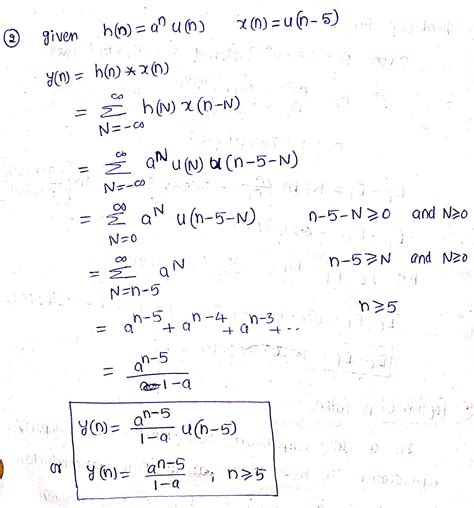 ② given h(n) = aⁿ u(n) x(n) = u(n-5)
y(n) = h(n) * x(n)
= ∞ Σ N=-∞ h(N) x(n-N)
= ∞ Σ N=-∞ a^N u(N) u(n-5-N)
= ∞ Σ N=0 a^N u(n-5-N) n-5-N ≥ 0 and N≥0
= ∞ Σ N=n-5 a^N n-5 ≥ N and N≥0
n ≥ 5
= a^(n-5) + a^(n-4) + a^(n-3) + ..
= a^(n-5) / 1-a
y(n) = a^(n-5) / 1-a u(n-5)
or y(n) = a^(n-5) / 1-a ; n ≥ 5